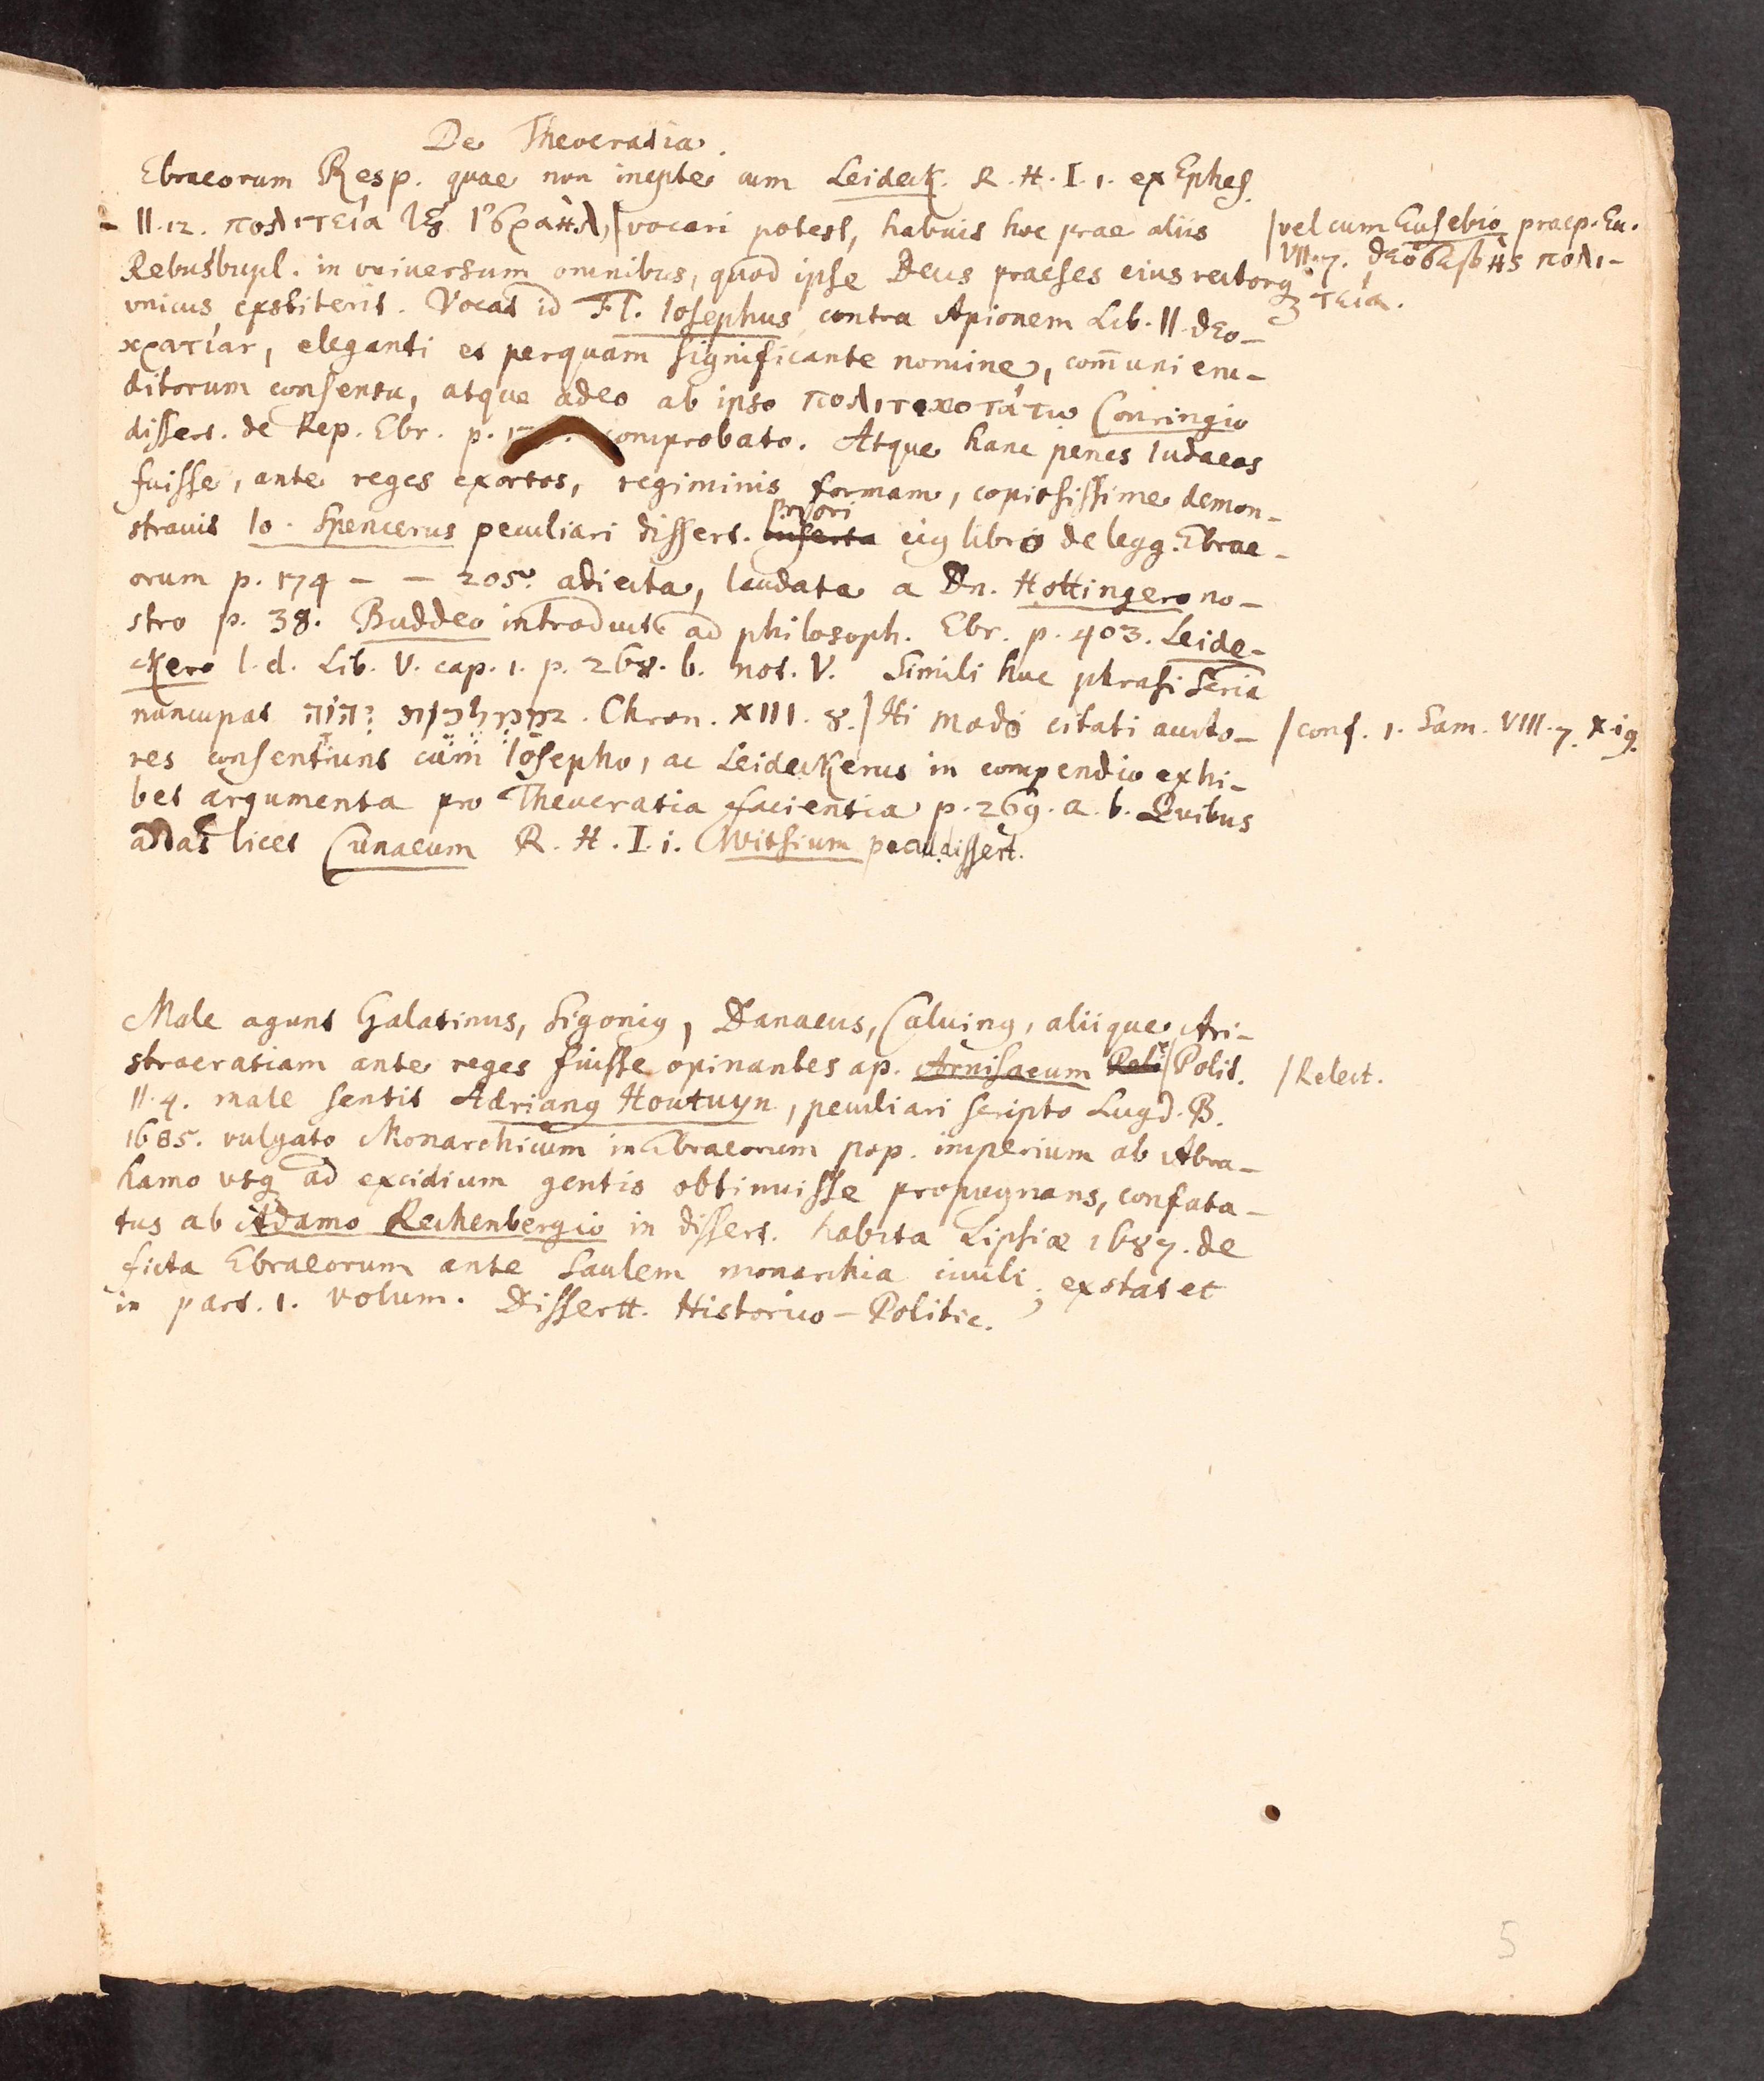 De Theocratia.
Ebraeorum Resp. quae non inepte cum Leideck. R. H. I. 1. ex Ephes.
II. 12. πολιτεία τȣ͂ Ἰσραὴλ, / vocari potest, habuit hoc prae aliis
/ vel cum Eusebio praep. Eu.
VII. 7. θεοσεβὴς πολι-
τεία.
Rebusbupl. in vniversum omnibus, quod ipse Deus praeses eius rectorq;
vnicus exstiterit. Vocat id Fl. Iosephus contra Apionem Lib. II. θεο-
κρατίαν, eleganti et perquam significante nomine, com̄uni eru-
ditorum consensu, atque adeo ab ipso πολιτικοτάτῳ Conringio
dissert. de Rep. Ebr. p. comprobato. Atque hanc penes Iudaeos
fuisse, ante reges exortos, regiminis formam, copiosissime demon-
stravit Io. Spencerus peculiari dissert. priori
inserta eiq libro de legg. Ebrae-
orum p. 174 - - 205. adiecta, laudata a Dn. Hottingero no-
stro p. 38. Buddeo introduct. ad philosoph. Ebr. p. 403. Leide-
ckero l. d. Lib. V. cap. 1. p. 268. b. not. V. Simili huc phrasi Scria
nuncupat ממלכת יהוה 2. Chron. XIII. 8. / Hi modo citati aucto-
/ conf. 1. Sam. VIII. 7. X. 19.
res consentiunt cum Iosepho, ac Leideckerus in compendio exhi-
bet argumenta pro Theocratia facientia p. 269. a. b. Quibus
addas licet Cunaeum R. H. I. i. Witsium pecul. dissert.
Male agunt Galatinus, Sigoniq, Danaeus, Calvinq, aliique Ari-
stocratiam ante reges fuisse opinantes ap. Arnisaeum Reli / Polit.
/ Relect.
II. 4. male sentit Adrianq Houtuyn, peculiari scripto Lugd. B.
1685. vulgato Monarchicum in Ebraeorum pop. imperium ab Abra-
hamo vsq ad excidium gentis obtinuisse propugnans, confuta-
tus ab Adamo Rechenbergio in dissert. habita Lipsiæ 1687. de
ficta Ebraeorum ante Saulem monarchia civili; exstat et
in part. 1. volum. Dissertt. Historico-Politic.
5